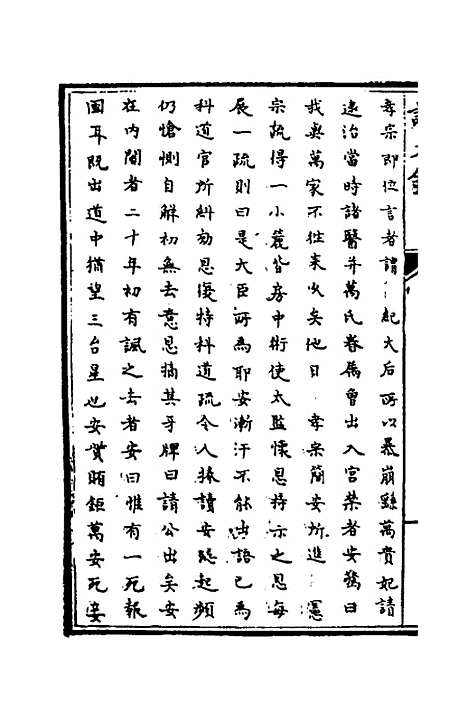 孝宗即位言者謂紀太后所以暴崩繇萬貴妃請
逮治當時諸醫并萬氏眷屬曾出入宮禁者安驚曰
我與萬家不往來久矣他日 孝宗簡安所進 憲
宗疏得一小篋皆房中術使太監懷恩持示之恩每
展一疏則曰是大臣所為耶安漸汗不能出語已為
科道官所糾劾恩復持科道疏令人捧讀安跪起頻
仍愴惻自解初無去意恩摘其牙牌曰請公出矣安
在內閣者二十年初有諷之去者安曰惟有一死報
國耳既出道中猶望三台星也安貲賄鉅萬安死妾